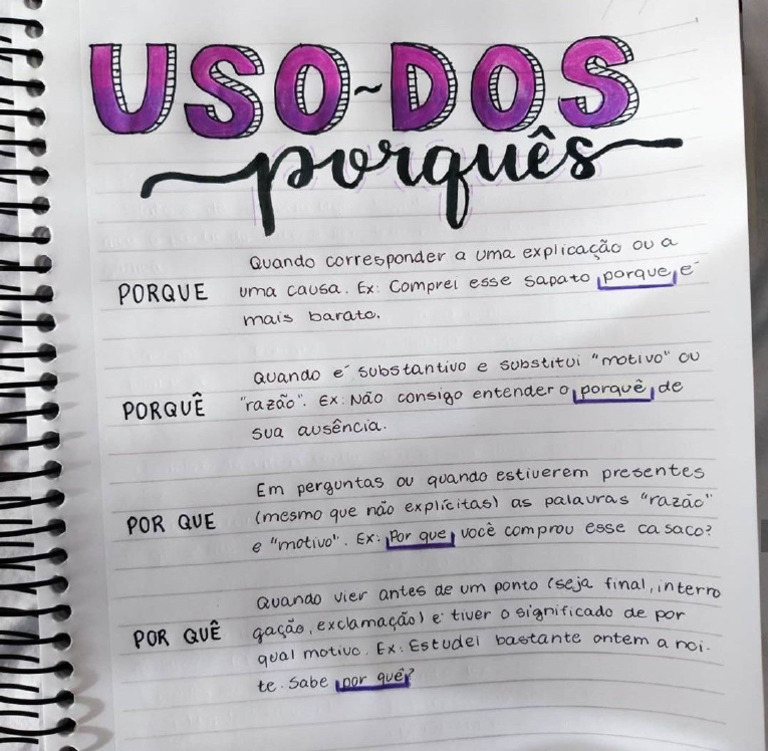 USO~DOS
porquês
PORQUE
Quando corresponder a uma explicação ou a
uma causa. Ex: Comprei esse sapato porque é
mais barato.
PORQUÊ
Quando é substantivo e substitui "motivo" ou
"razão". Ex: Não consigo entender o porquê de
sua ausência.
POR QUE
Em perguntas ou quando estiverem presentes
(mesmo que não explícitas) as palavras "razão"
e "motivo". Ex: Por que você comprou esse casaco?
POR QUÊ
Quando vier antes de um ponto (seja final, interro
gação, exclamação) e tiver o significado de por
qual motivo. Ex: Estudei bastante ontem a noi-
te. Sabe por quê?